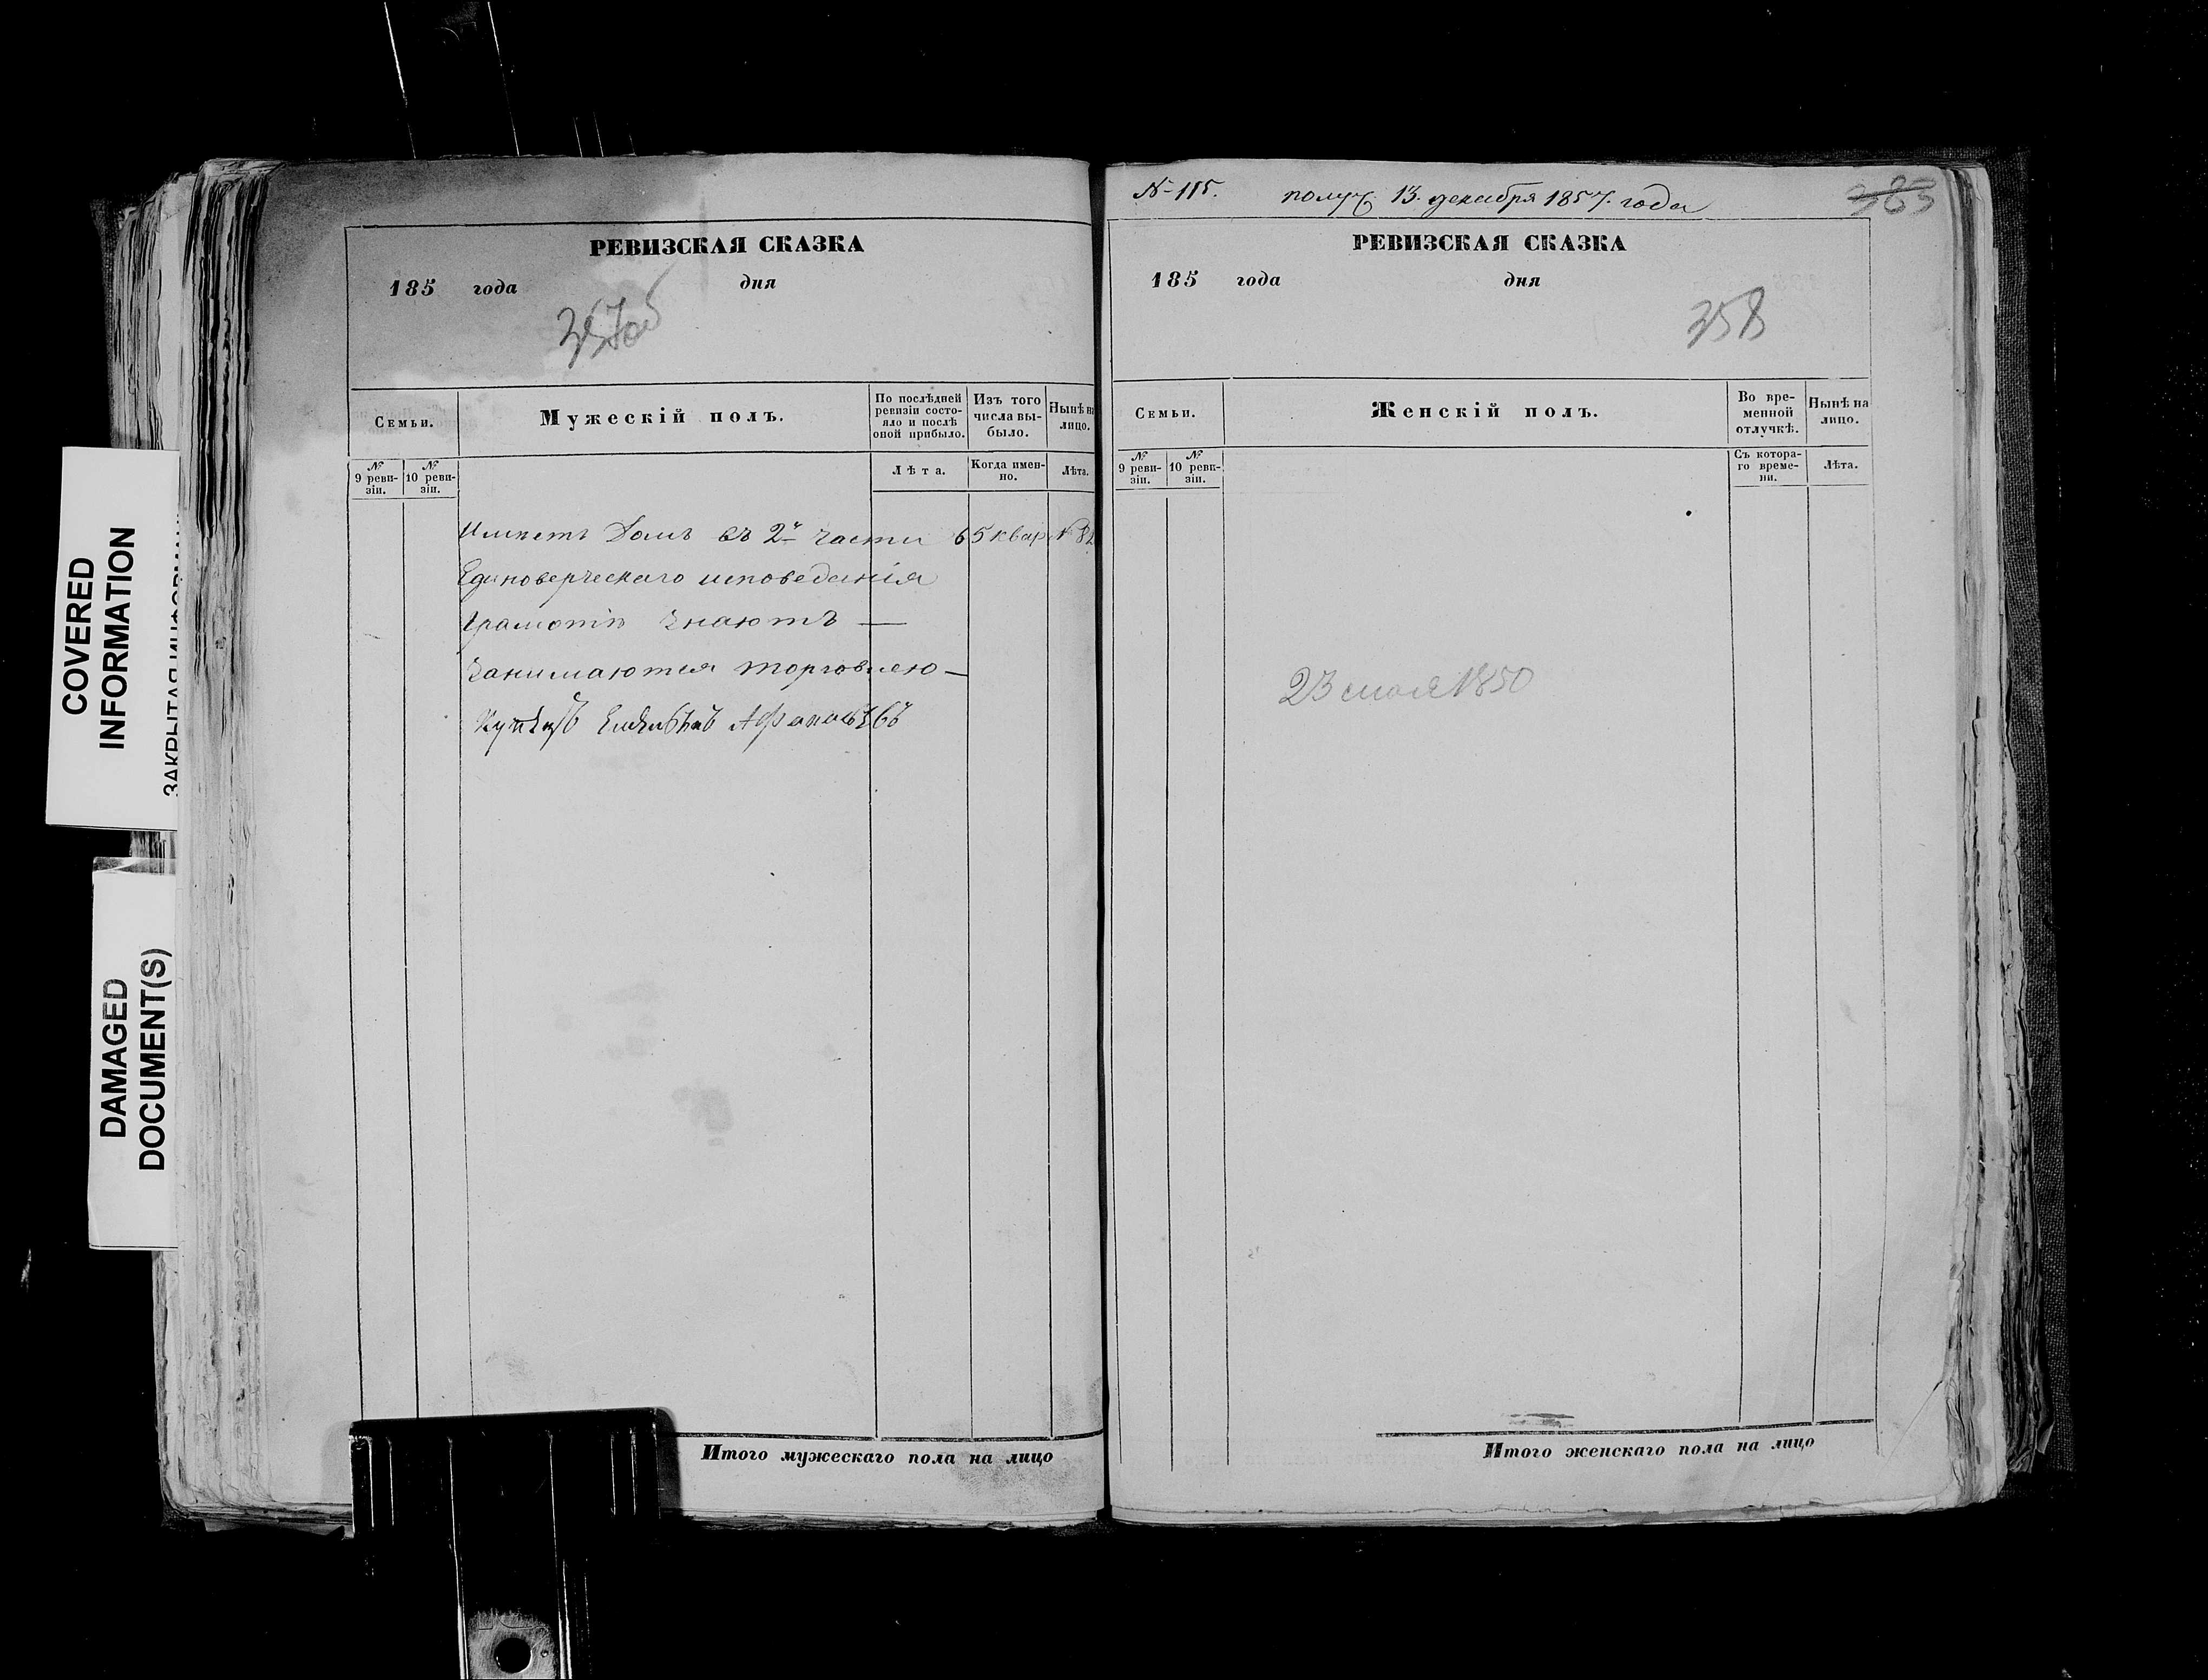 COVERED
INFORMATION
DAMAGED
DOCUMENT(S)
РЕВИЗСКАЯ СКАЗКА
185 года дня
357об
Семьи.
Мужескій полъ.
По послѣдней ревизіи состояло и послѣ оной прибыло.
Изъ того числа выбыло.
Нынѣ на лицо.
№ 9 ревизіи.
№ 10 ревизіи.
Лѣта.
Когда именно.
Лѣта.
Имѣетъ Домъ въ 2й части 65 квар №
Единоверческаго исповеданія
Грамотѣ знаютъ —
Занимаются торговлею —
Купецъ
Итого мужескаго пола на лицо
№ 115. получ. 13. декабря 1857. года
383
РЕВИЗСКАЯ СКАЗКА
185 года дня
358
Семьи.
Женскій полъ.
Во временной отлучкѣ.
Нынѣ на лицо.
№ 9 ревизіи.
№ 10 ревизіи.
Съ котораго времени.
Лѣта.
23 1850
Итого женскаго пола на лицо